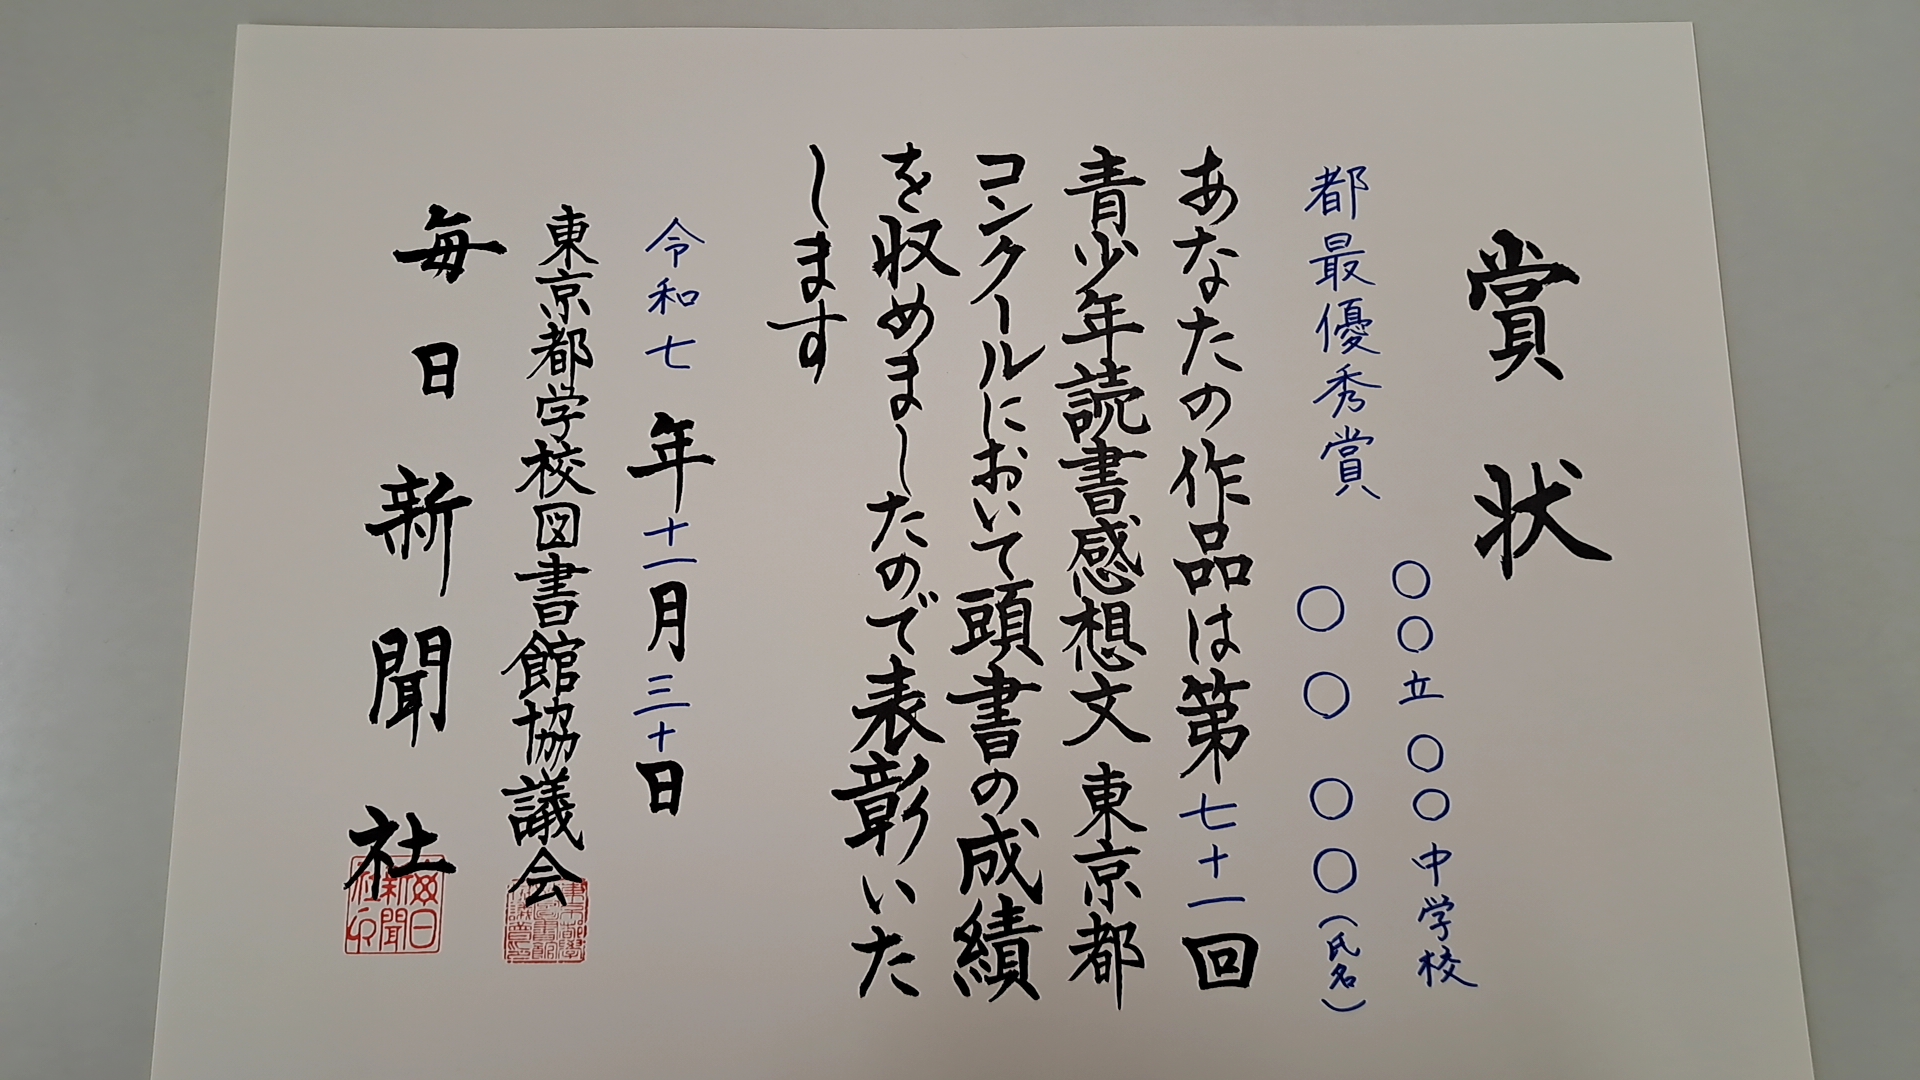 賞状
〇〇立〇〇中学校
都最優秀賞 〇〇〇〇(氏名)
あなたの作品は第七十一回
青少年読書感想文東京都
コンクールにおいて頭書の成績
を収めましたので表彰いた
します
令和七年十一月三十日
東京都学校図書館協議会
毎日新聞社